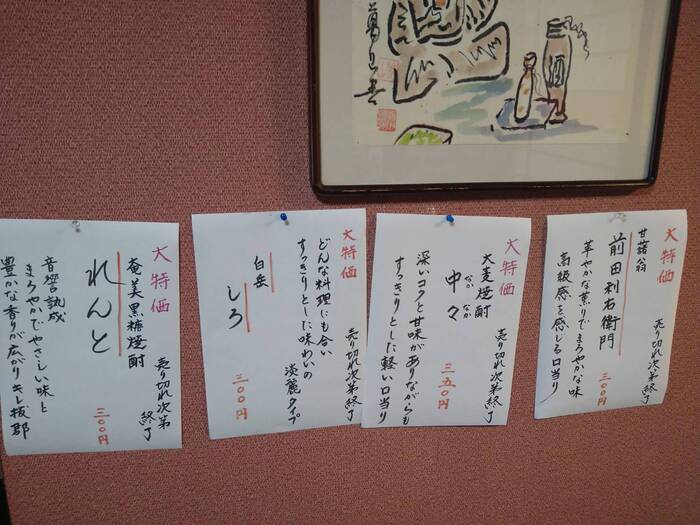 酒
大特価
売り切れ次第終了
甘藷翁
前田利右衛門
三〇〇円
華やかな薫りでまろやかな味
高級感を感じる口当り
大特価
売り切れ次第終了
大麦焼酎
中々
なか なか
三五〇円
深いコクと甘味がありながらも
すっきりとした軽い口当り
大特価
売り切れ次第終了
どんな料理にも合い
すっきりとした味わいの
淡麗タイプ
白岳
しろ
三〇〇円
大特価
売り切れ次第
終了
奄美黒糖焼酎
れんと
三〇〇円
音響熟成
まろやかでやさしい味と
豊かな香りが広がりキレ抜郡